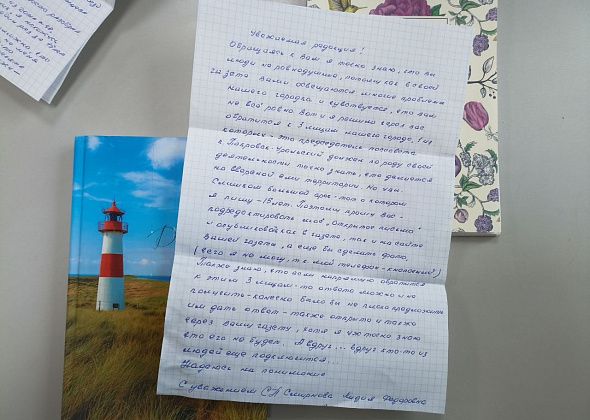 Уважаемая редакция!
Обращаюсь к вам я точно знаю, что вы
люди не равнодушные, потому как в своей
газете вами освещаются многие проблемы
нашего городка и чувствуется, что вам
не всё ровно. Вот и я решила через вас
обратится к 3 лицам нашего города, 1 из
которых - это председатель поссовета
г. Покровск-Уральский должен по роду своей
деятельности точно знать, что делается
на вверенной ему территории. Но увы.
Слишком большой срок - то о котором
я пишу - 15 лет. Поэтому прошу вас -
подредактировать моё "Открытое письмо"
и опубликовать как в газете, так и на сайте
вашей газеты, а ещё бы сделать фото,
(чего я не могу, т.к. мой телефон - кнопочный)
Также знаю, что если напрямую обратится
к этим 3 лицам - то ответа можно и не
получить - конечно было бы не плохо предложить
им дать ответ - также открыто и также
через вашу газету, хотя я уж точно знаю
что его не будет. А вдруг... вдруг кто-то из
людей ещё подключится.
Надеюсь на понимание
С уважением Смирнова Лидия Федоровна